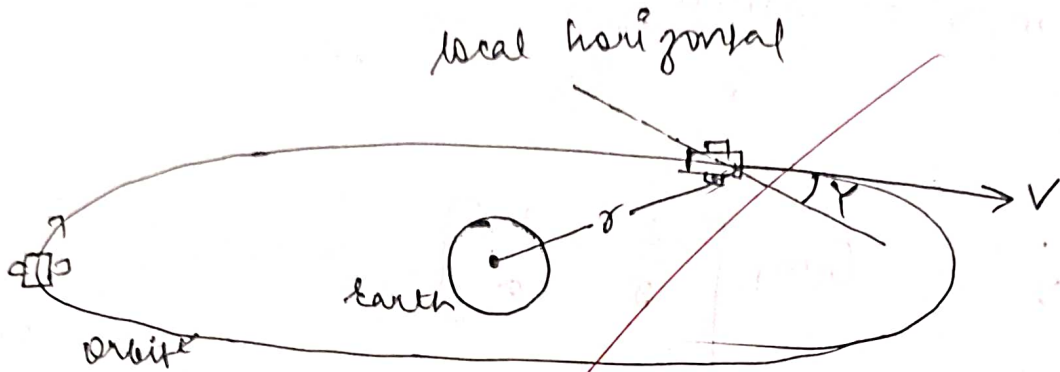 local horizontal
V
γ
r
Earth
Orbit